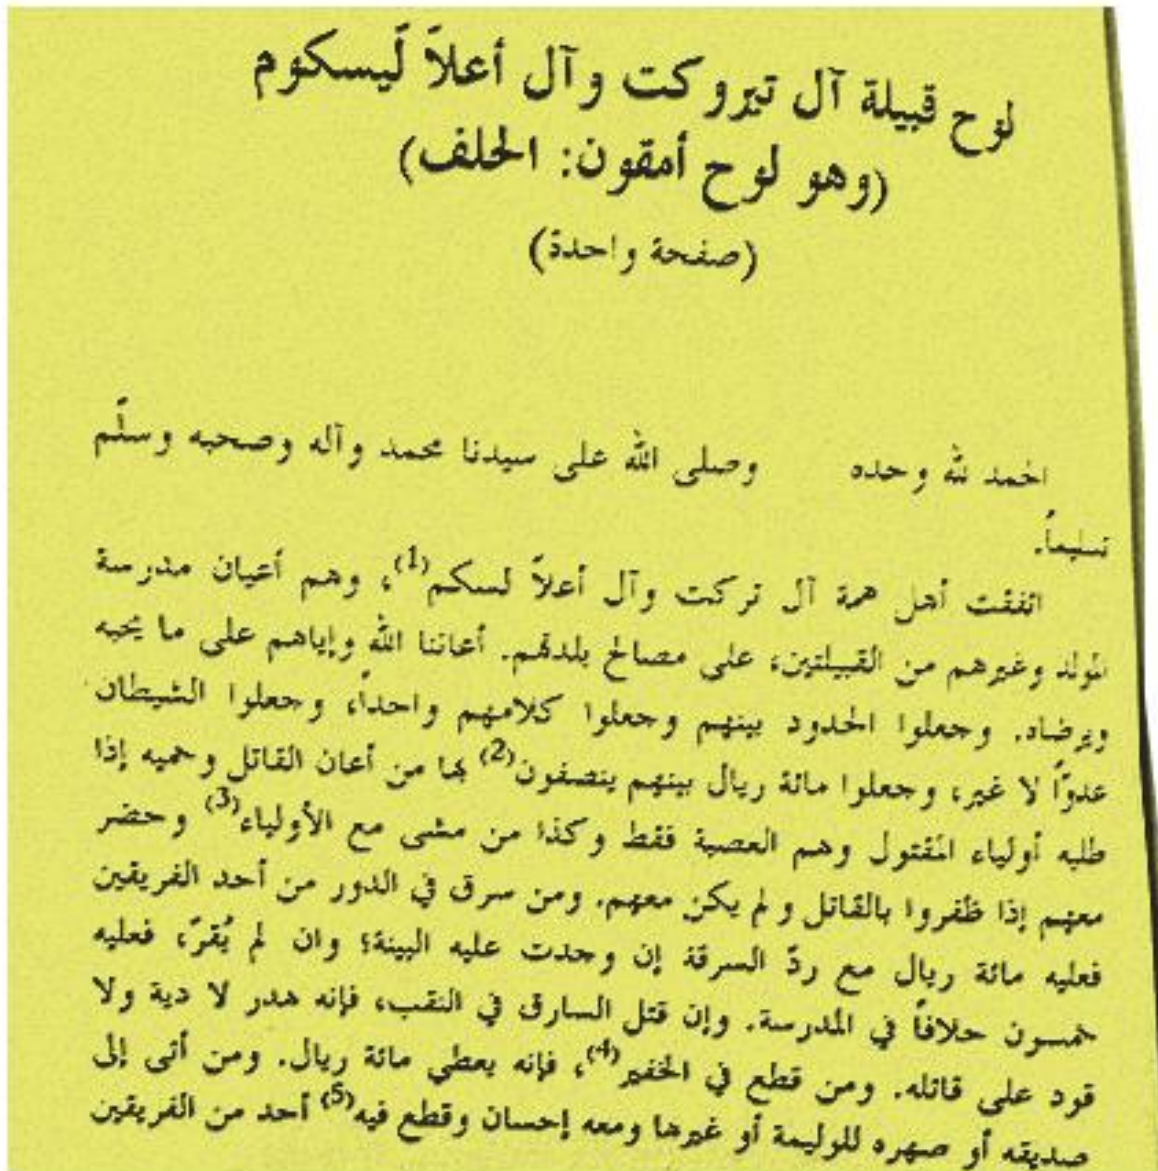 لوح قبيلة آل تيروكت وآل أعلاً لَيسكوم
(وهو لوح أمقون: الحلف)
(صفحة واحدة)
الحمد لله وحده وصلى الله على سيدنا محمد وآله وصحبه وسلّم
تسليماً.
اتفقت أهل همة آل تركت وآل أعلاً لسكم(1)، وهم أعيان مدرسة
المولد وغيرهم من القبيلتين، على مصالح بلدتهم. أعاننا الله وإياهم على ما يحبه
ويرضاه. وجعلوا الحدود بينهم وجعلوا كلامهم واحداً، وجعلوا الشيطان
عدوّاً لا غير، وجعلوا مائة ريال بينهم ينصفون(2) بها من أعان القاتل وحميه إذا
طلبه أولياء المقتول وهم العصبة فقط وكذا من مشى مع الأولياء(3) وحضر
معهم إذا ظفروا بالقاتل و لم يكن معهم. ومن سرق في الدور من أحد الفريقين
فعليه مائة ريال مع ردّ السرقة إن وجدت عليه البينة؛ وان لم يُقرّ، فعليه
خمسون حلافاً في المدرسة. وإن قتل السارق في النقب، فإنه هدر لا دية ولا
قود على قاتله. ومن قطع في الخفير(4)، فإنه يعطي مائة ريال. ومن أتى إلى
صديقه أو صهره للوليمة أو غيرها ومعه إحسان وقطع فيه(5) أحد من الفريقين